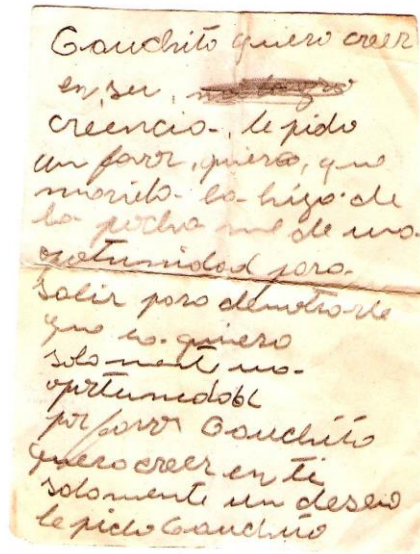 Gauchito quiero creer
en, su,
creencia-, le pido
un favor, quiero, que
mariela- la higa de
la pocha me de una
oportunidad para-
salir para demotrarle
que la quiero
solamente una-
oportunidad
por favor Gauchito
quiero creer en ti
solamente un deseo
le pido Gauchito